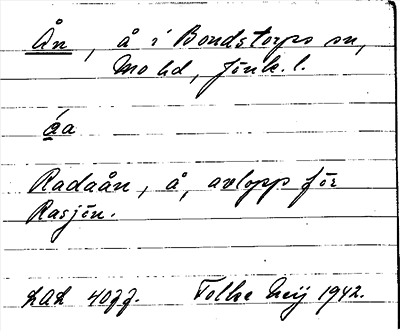 Ån, å i Bondstorps sn,
Mo hd, Jönk. l.
áa
Radaån, å, avlopp för
Rasjön.
LAL 4077. Folke Heij 1942.